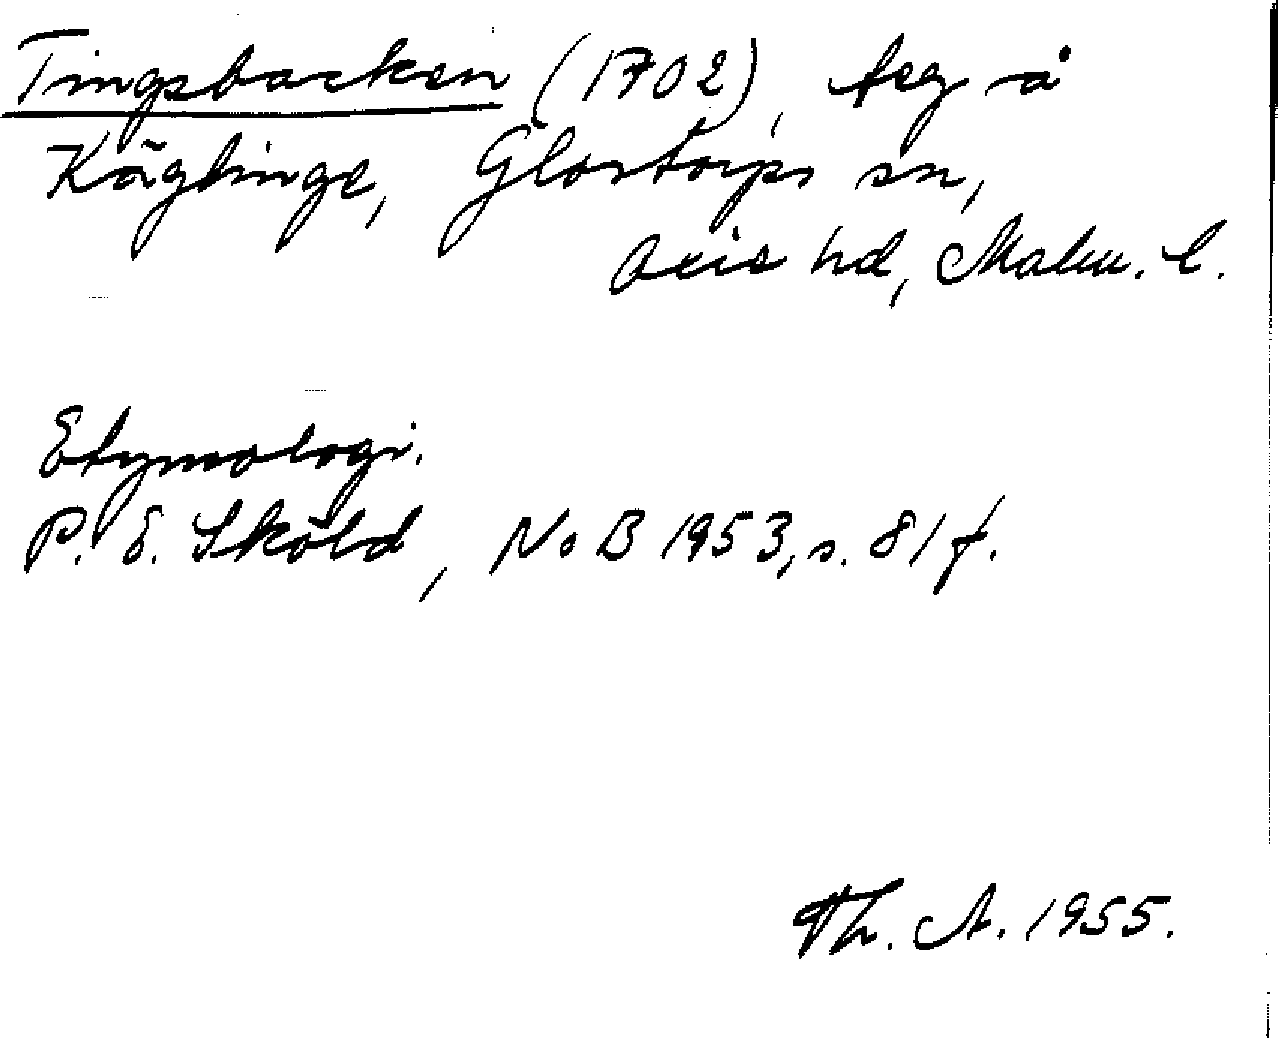 Tingsbacken (1702), teg å
Käglinge, Glostorps sn,
Oxie hd, Malm. l.
Etymologi.
P. E. Sköld, NoB 1953, s. 81 f.
Th. A. 1955.